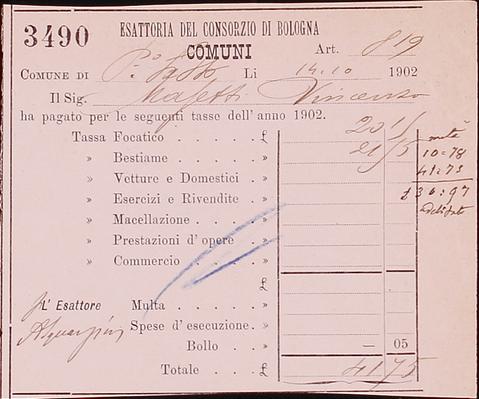 3490
ESATTORIA DEL CONSORZIO DI BOLOGNA
COMUNI
Art. 819
COMUNE DI Li 14.10 1902
Il Sig. Majetti Vincenzo
ha pagato per le seguenti tasse dell'anno 1902.
Tassa Focatico . . . . £ 20
» Bestiame . . . . » 21 5
» Vetture e Domestici . »
» Esercizi e Rivendite . »
» Macellazione . . . . »
» Prestazioni d'opere . »
» Commercio . . . . »
£
L'Esattore Multa . . . . . »
Spese d'esecuzione. »
Bollo . . » — 05
Totale . . . £ 41 75
metà
10=78
41=75